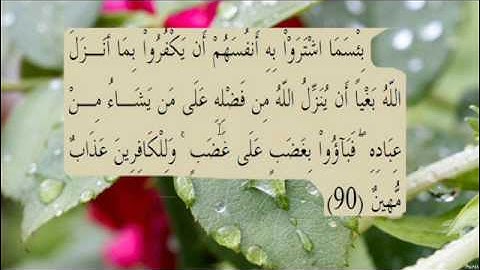 بِئْسَمَا اشْتَرَوْاْ بِهِ أَنفُسَهُمْ أَن يَكْفُرُواْ بِمَا أنَزَلَ
اللّهُ بَغْياً أَن يُنَزِّلُ اللّهُ مِن فَضْلِهِ عَلَى مَن يَشَاءُ مِنْ
عِبَادِهِ ۖ فَبَآؤُواْ بِغَضَبٍ عَلَى غَضَبٍ ۚ وَلِلْكَافِرِينَ عَذَابٌ
مُّهِينٌ (90)